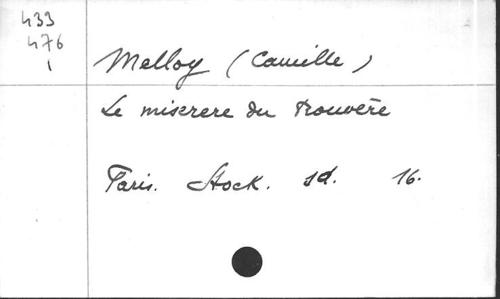 433
476
1
Melloy (Camille)
Le miserere du trouvère
Paris. Stock. sd. 16.